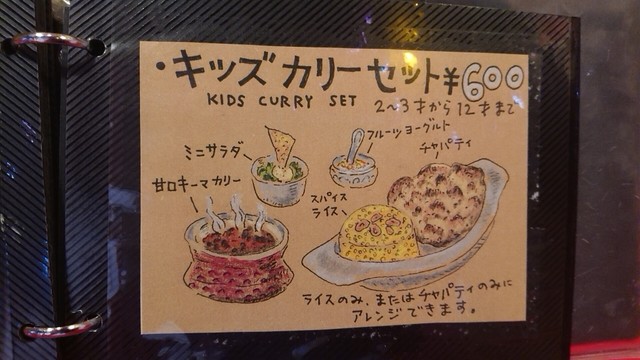 ・キッズカリーセット ¥600
KIDS CURRY SET 2〜3才から12才まで
フルーツヨーグルト
ミニサラダ
チャパティ
甘口キーマカリー
スパイス
ライス
ライスのみ、またはチャパティのみに
アレンジできます。